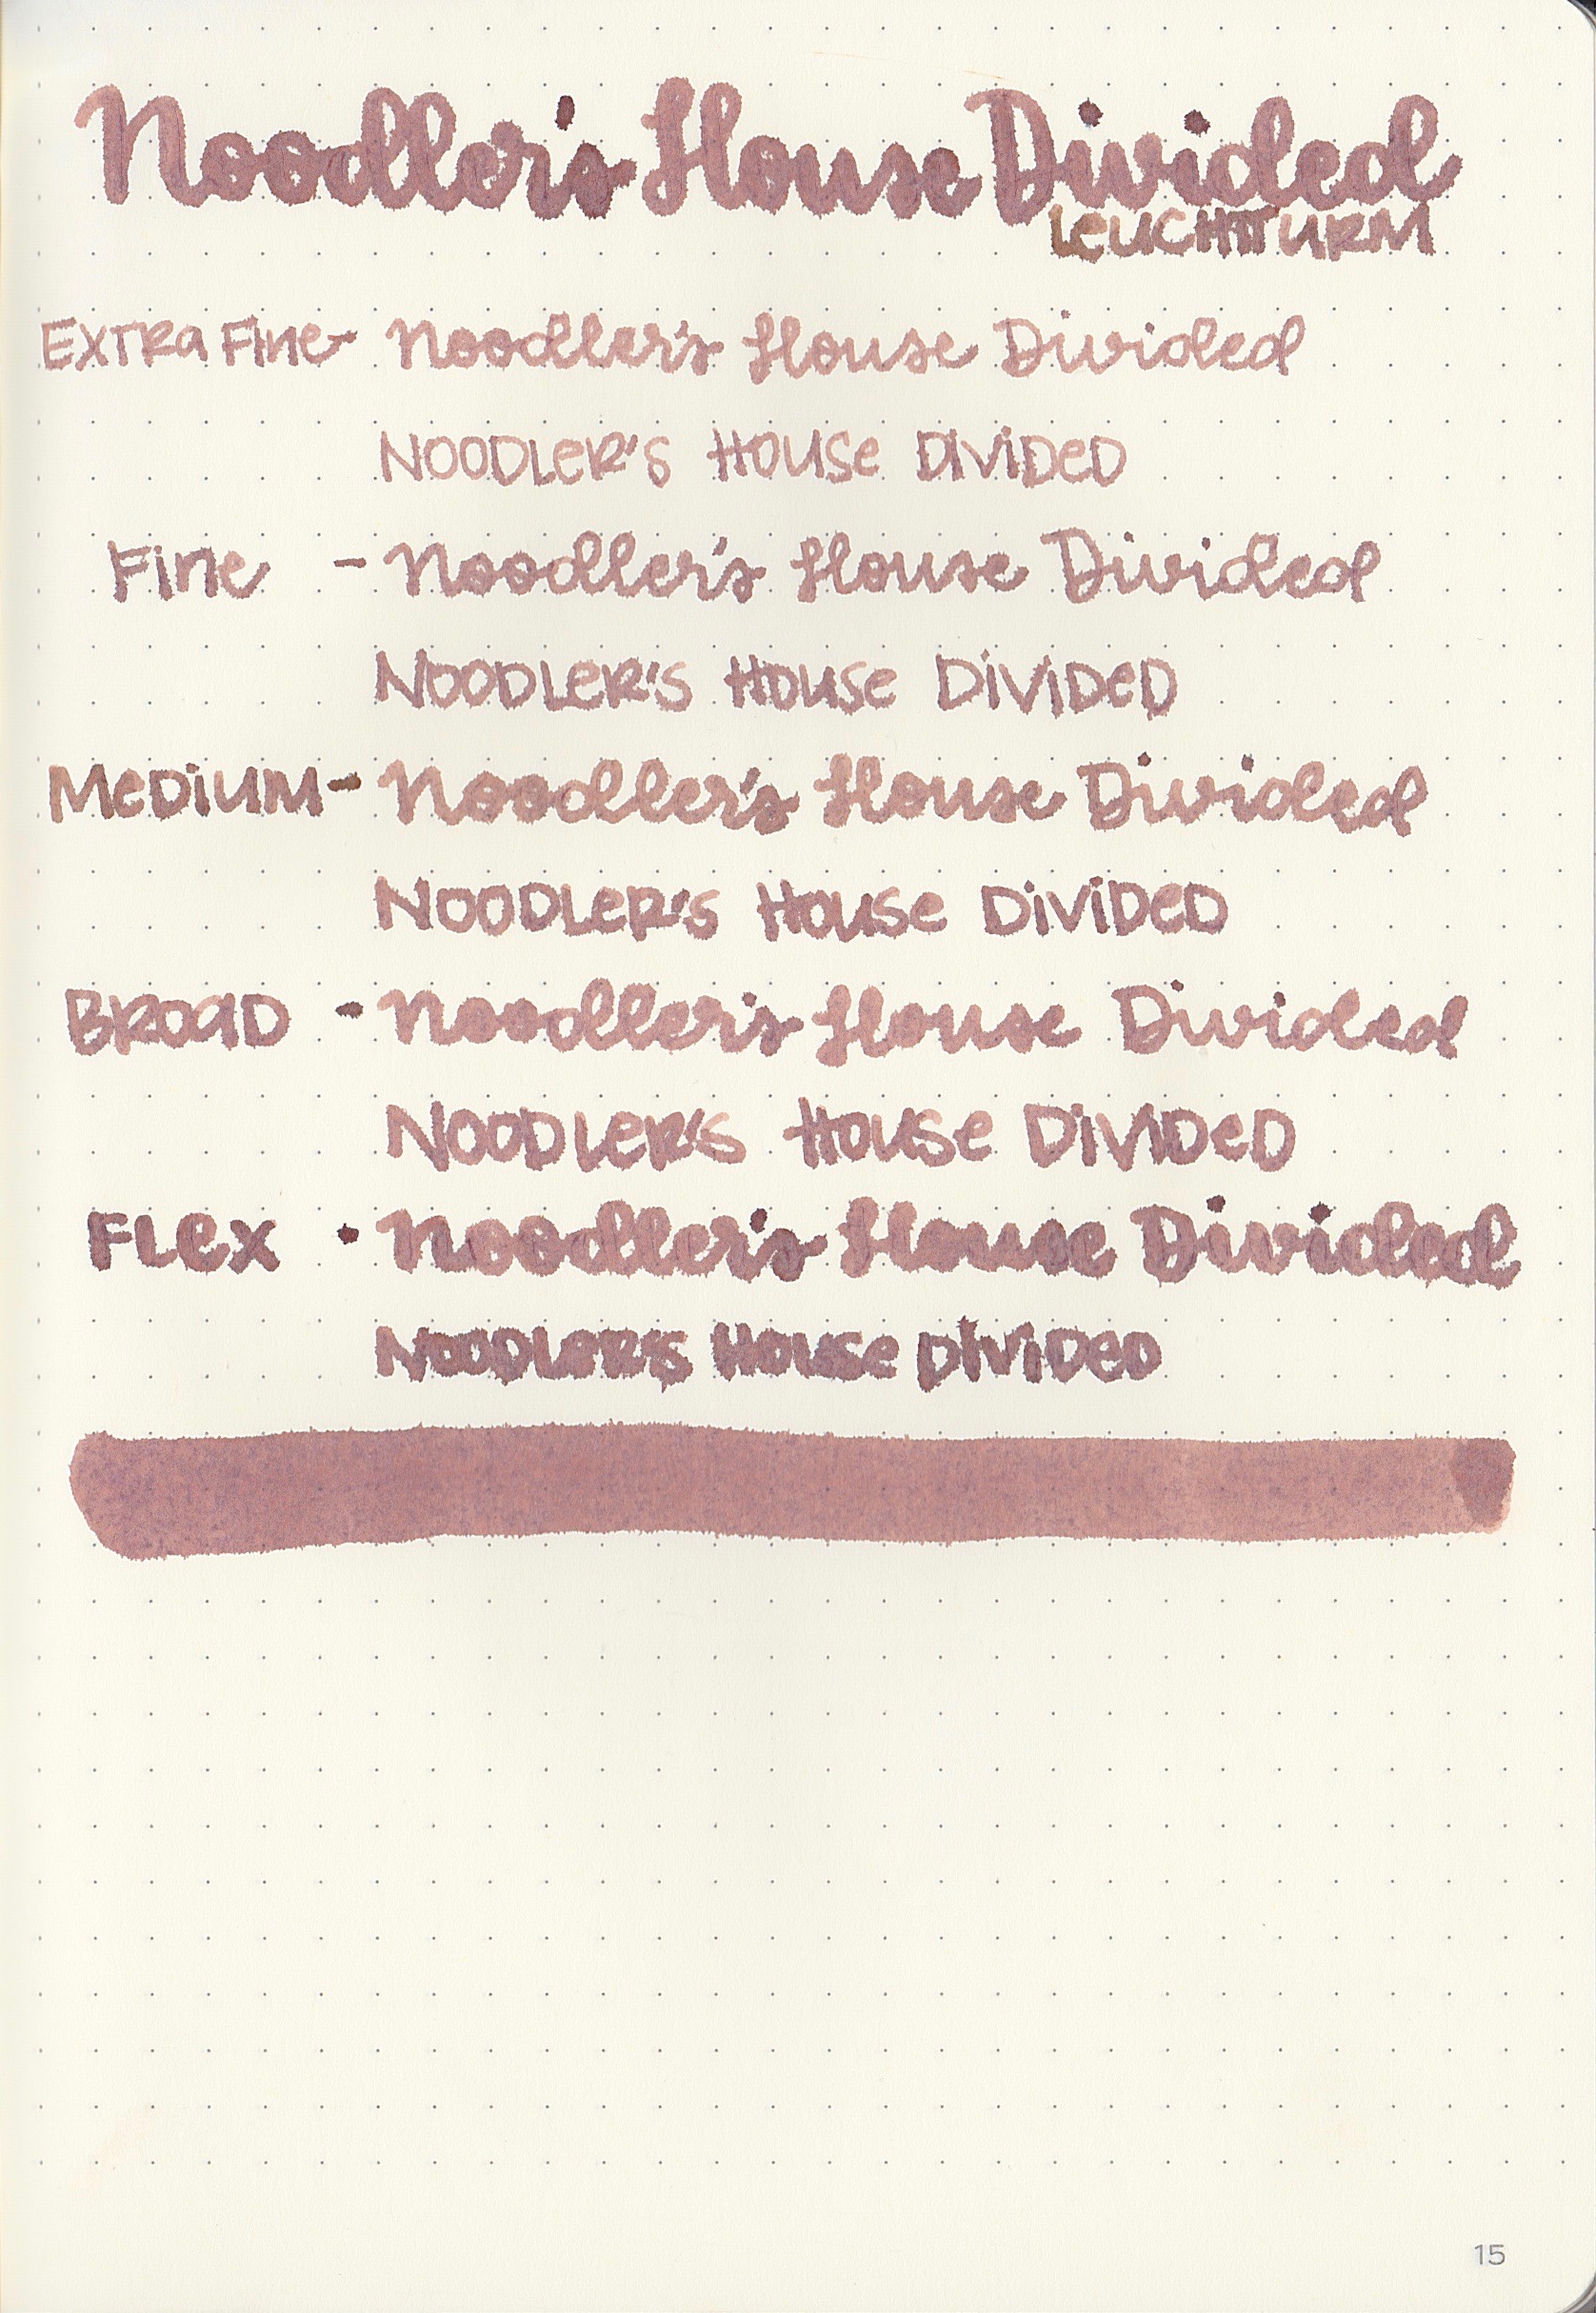 Noodler's House Divided
LeUCHTTURM
EXTRa Fine- Noodler's House Divided
NOODLeR'S HOUSe DiViDeD
Fine - Noodler's House Divided
NOODLeR'S HOUSe DiViDeD
MeDiUM- Noodler's House Divided
NOODLeR'S HOUSe DiViDeD
BROaD - Noodler's House Divided
NOODLeR'S HOUSe DiViDeD
FLex - Noodler's House Divided
NOODLeR'S HOUSe DiViDeD
15